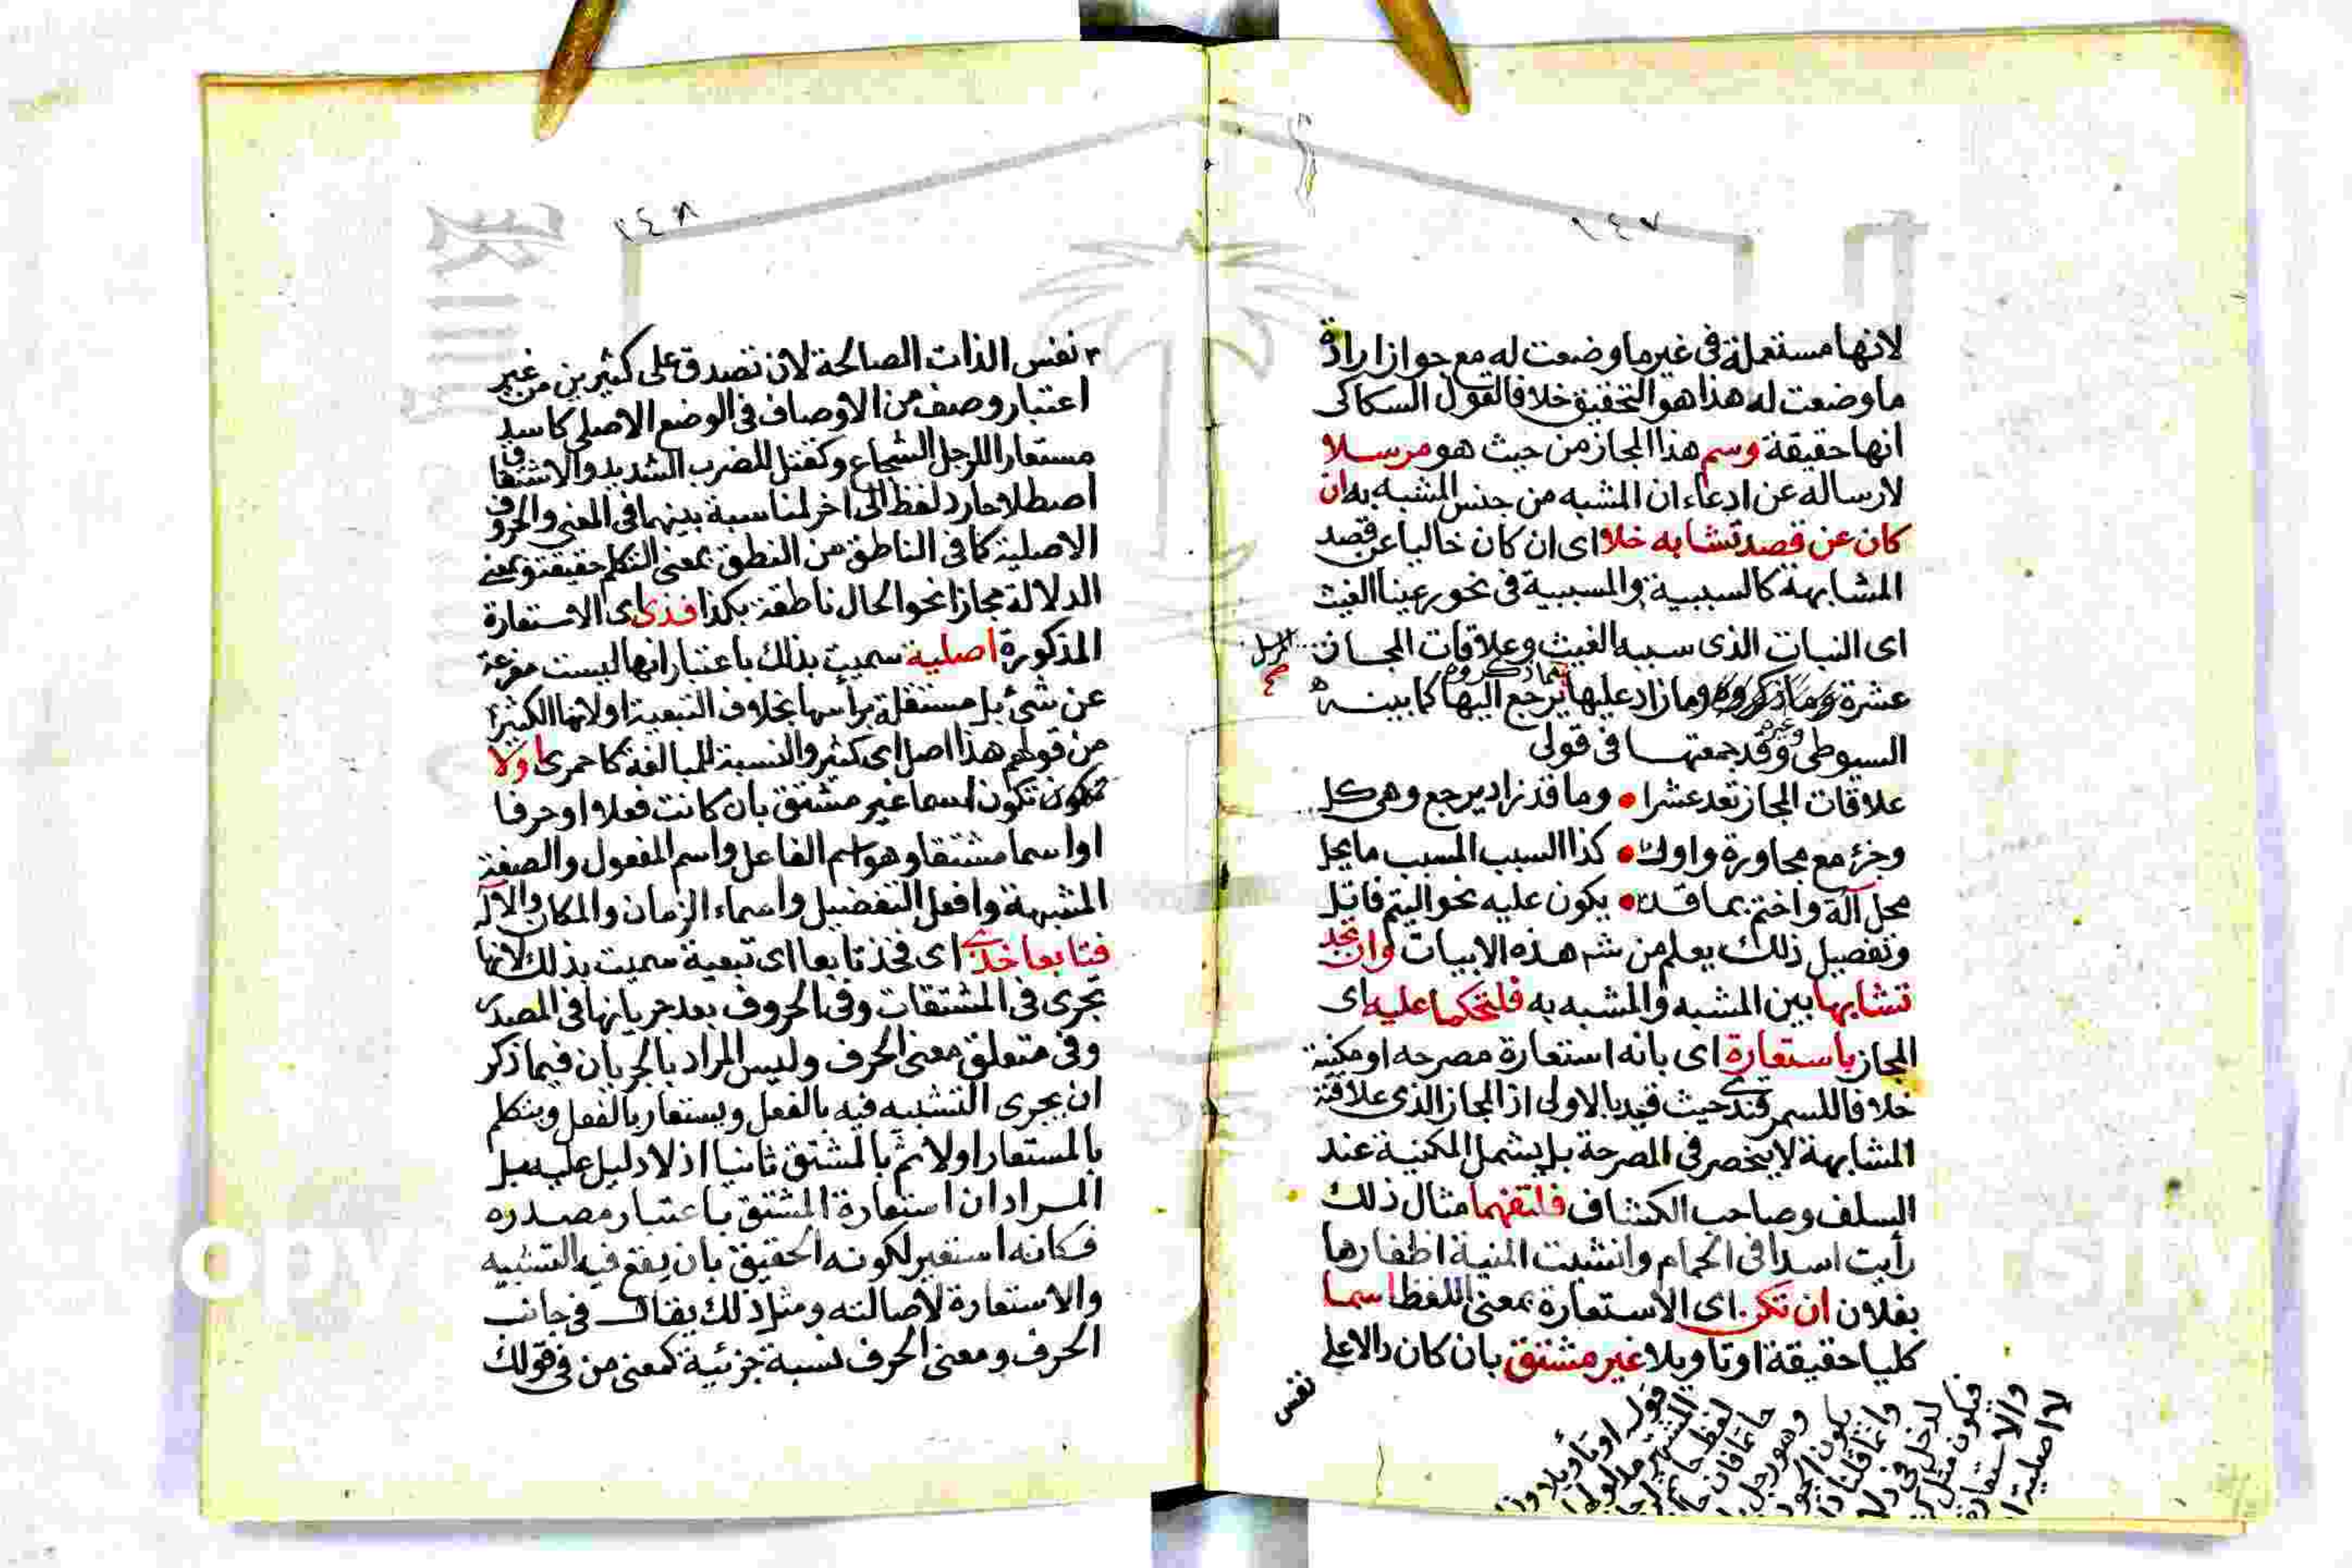 ١٤٧
لانها مستعملة فى غير ما وضعت له مع جواز ارادة
ما وضعت له هذا هو التحقيق خلافا لقول السكاكى
انها حقيقة وسم هذا المجاز من حيث هو مرسلا
لارساله عن ادعاء ان المشبه من جنس المشبه به ان
كان عن قصد تشابه خلا اى ان كان خاليا عن قصد
المشابهة كالسببية والمسببية فى نحو رعينا الغيث
اى النبات الذى سببه الغيث وعلاقات المجاز المرسل
صح
عشرة وما زاد عليها مما ذكروه يرجع اليها كما بينه
السيوطى وغيره وقد جمعتها فى قولى
علاقات المجاز تعد عشرا • وما قد زاد يرجع وهى كل
وجزء مع مجاورة واول • كذا السبب المسبب ما يحل
محل آلة واختم بما قد • يكون عليه نحو اليتم فاتل
وتفصيل ذلك يعلم من شرح هذه الابيات وان تجد
تشابها بين المشبه والمشبه به فلتحكما عليه اى
المجاز باستعارة اى بانه استعارة مصرحه او مكنية
خلافا للسمرقندى حيث قيد بالاولى اذ المجاز الذى علاقته
المشابهة لا ينحصر فى المصرحة بل يشمل المكنية عند
السلف وصاحب الكشاف فلتفهما مثال ذلك
رأيت اسدا فى الحمام وانشبت المنية اظفارها
بفلان ان تكن اى الاستعارة بمعنى اللفظ اسما
كليا حقيقة او تاويلا غير مشتق بان كان دالا على
نفس
قوله او تأويلا
١٤٨
نفس الذات الصالحة لان تصدق على كثيرين من غير
اعتبار وصف من الاوصاف فى الوضع الاصلى كاسد
مستعارا للرجل الشجاع وكقتل للضرب الشديد والاشتقاق
اصطلاحا رد لفظ الى اخر لمناسبة بينهما فى المعنى والحروف
الاصلية كما فى الناطق من النطق بمعنى التكلم حقيقة وبمعنى
الدلالة مجازا نحو الحال ناطقة بكذا فذى اى الاستعارة
المذكورة اصلية سميت بذلك باعتبار انها ليست مفرعة
عن شئ بل مستقلة برأسها بخلاف التبعية او لانها الكثيرة
من قولهم هذا اصل اى كثير والنسبة للمبالغة كاحمرى او لا
تكون اسما غير مشتق بان كانت فعلا او حرفا
او اسما مشتقا وهو اسم الفاعل واسم المفعول والصفة
المشبهة وافعل التفضيل واسماء الزمان والمكان والآلة
فتابعا خذى اى فخذ تابعا اى تبعية سميت بذلك لانها
تجرى فى المشتقات وفى الحروف بعد جريانها فى المصدر
وفى متعلق معنى الحرف وليس المراد بالجريان فيما ذكر
ان يجرى التشبيه فيه بالفعل ويستعار بالفعل ويتكلم
بالمستعار اولا ثم بالمشتق ثانيا اذ لا دليل عليه بل
المراد ان استعارة المشتق باعتبار مصدره
فكانه استعير لكونه الحقيق بان يقع فيه التشبيه
والاستعارة لاصالته ومثل ذلك يقال فى جانب
الحرف ومعنى الحرف نسبة جزئية كمعنى من فى قولك